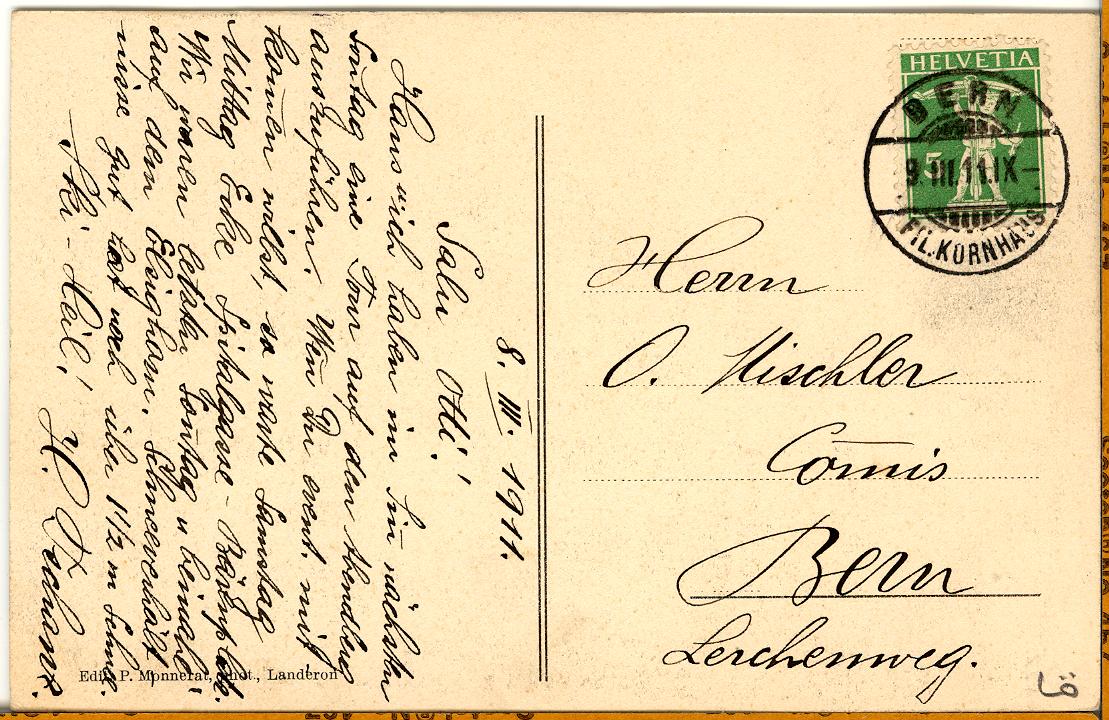 8. III. 1911.
Salu Otti!
Hans u ich haben im Sin nächsten
Sontag eine Tour auf den
auszuführen. Wen Du event. mit
komen willst, so warte Samstag
Mittag Ecke Spitalgasse - Bärenplatz.
Wir waren letzten Sontag u beinahe
auf den Elsighorn. Schneeverhält
nisse gut hat noch über 1 1/2 m Schnee.
Ski-Heil!
H. Dechant.
Edit. P. Monnerat, phot., Landeron
HELVETIA
5
BERN
9.III.11.IX-
FIL.KORNHAUS
Herrn
O. Mischler
Comis
Bern
Lerchenweg.